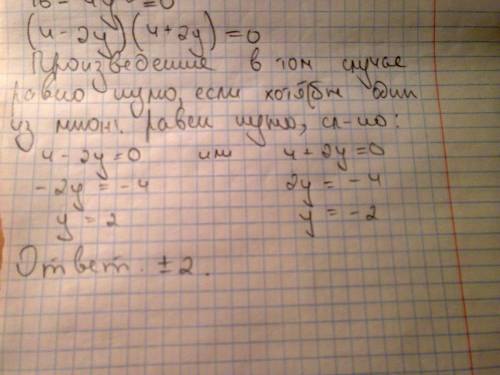 16 - 4y² = 0
(4-2y)(4+2y)=0
Произведение в том случае
равно нулю, если хотя бы один
из множ. равен нулю, сл-но:
4-2y=0 или 4+2y=0
-2y=-4 2y=-4
y=2 y=-2
Ответ. ±2.